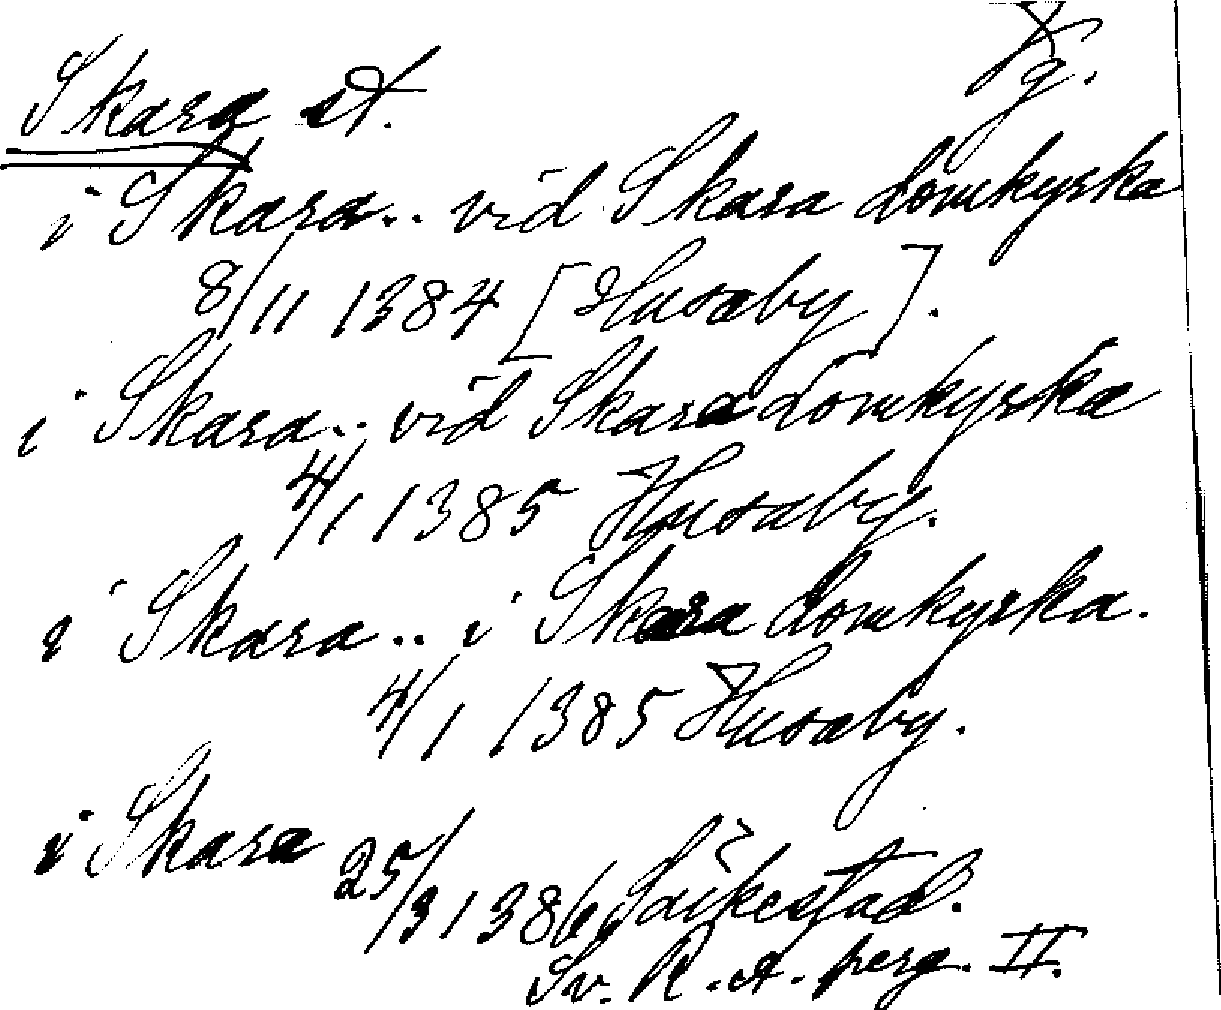 Vg.
Skara st.
i Skara.. vid Skara domkyrka
8/11 1384 [Husaby].
i Skara.. vid Skara domkyrka
4/1 1385 Husaby.
i Skara.. i Skara domkyrka.
4/1 1385 Husaby.
i Skara 25/3 1386
Sv. R. A. perg. II.